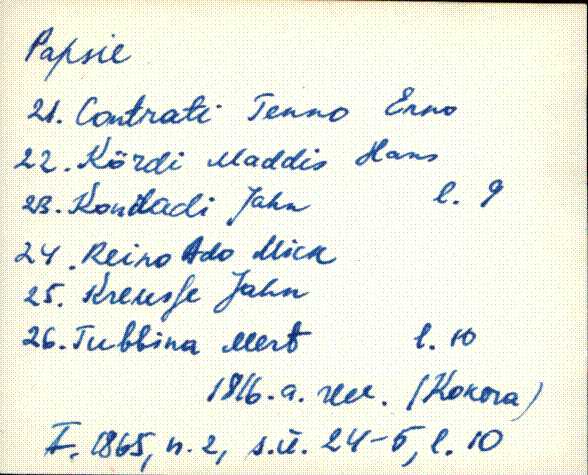 Papsie
21. Contrati Tenno Erno
22. Kördi Maddis Hans
23. Kondadi Jahn l. 9
24. Reino Ado Mick
25. Kreusse Jahn
26. Tubbina Mert l. 10
1816. a. rev. (Kokora)
F. 1865, n. 2, s.ü. 24-5, l. 10